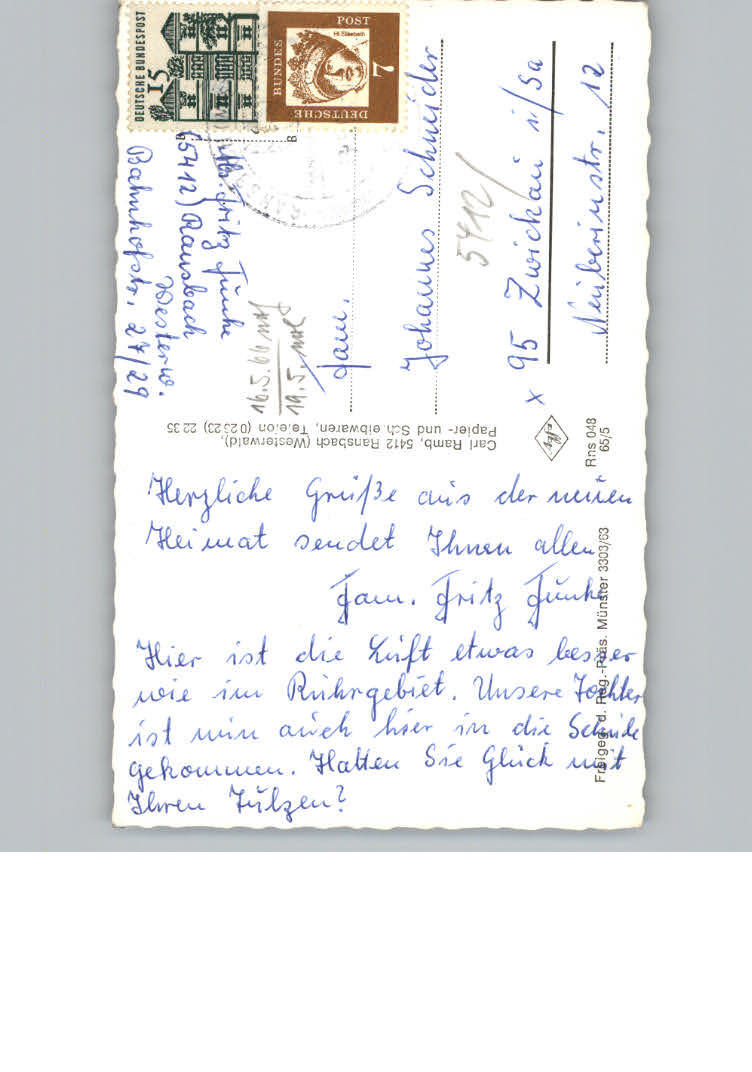 Herzliche Grüße aus der neuen
Heimat sendet Ihnen allen
Fam. Fritz Funke
Hier ist die Luft etwas besser
wie im Ruhrgebiet. Unsere Tochter
ist nun auch hier in die Schule
gekommen. Hatten Sie Glück mit
Ihren Tulpen?
Fam.
Johannes Schneider
5412/
x 95 Zwickau i/Sa
Neuberinstr. 12
Abs. Fritz Funke
(5412) Ransbach
Westerw.
Bahnhofstr. 27/29
16.5.66
19.5.
Carl Ramb, 5412 Ransbach (Westerwald),
Papier- und Sch eibwaren, Te.e.on (02323) 2235
Rns 048
65/5
Freigeg. d. Reg.-Präs. Münster 3303/63
DEUTSCHE BUNDESPOST
15
DEUTSCHE
BUNDES
POST
7
Hl. Elisabeth